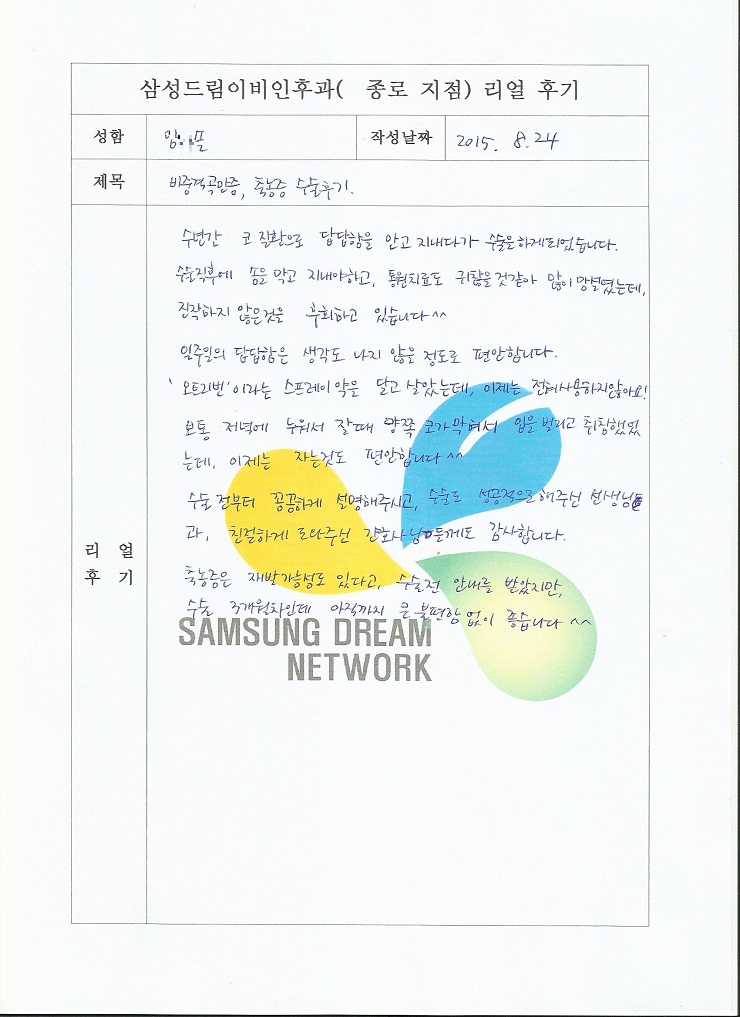 삼성드림이비인후과( 종로 지점) 리얼 후기
성함 작성날짜 2015. 8.24
제목 비중격곡만증, 축농증 수술후기.
수년간 코 질환으로 답답함을 안고 지내다가 수술을하게되었습니다.
수술직후에 솜을 막고 지내야하고, 통원치료도 귀찮을것같아 많이 망설였는데,
진작하지 않은것을 후회하고 있습니다^^
일주일의 답답함은 생각도 나지 않을 정도로 편안합니다.
'오트리빈'이라는 스프레이 약을 달고 살았는데, 이제는 전혀사용하지않아요!
보통 저녁에 누워서 잘때 양쪽 코가막혀서 입을 벌리고 취침했었
는데, 이제는 자는것도 편안합니다^^
수술전부터 꼼꼼하게 설명해주시고, 수술도 성공적으로해주신 선생님들
과, 친절하게 도와주신 간호사님들께도 감사합니다.
리 얼
후 기
축농증은 재발가능성도 있다고, 수술전 안내를 받았지만,
수술 3개월차인데 아직까지 큰 불편함 없이 좋습니다^^
SAMSUNG DREAM
NETWORK